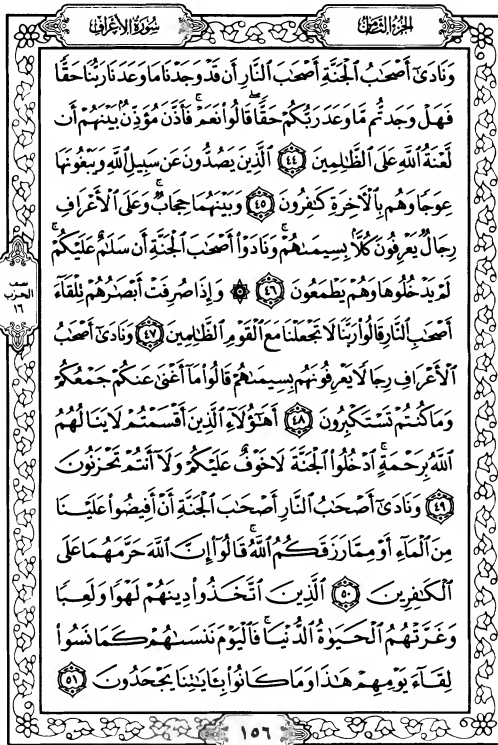 الجُزْءُ الثَّامِنُ
سُورَةُ الأَعْرَافِ
وَنَادَىٰٓ أَصْحَٰبُ ٱلْجَنَّةِ أَصْحَٰبَ ٱلنَّارِ أَن قَدْ وَجَدْنَا مَا وَعَدَنَا رَبُّنَا حَقًّا
فَهَلْ وَجَدتُّم مَّا وَعَدَ رَبُّكُمْ حَقًّا ۖ قَالُوا۟ نَعَمْ ۚ فَأَذَّنَ مُؤَذِّنٌۢ بَيْنَهُمْ أَن
لَّعْنَةُ ٱللَّهِ عَلَى ٱلظَّٰلِمِينَ ٤٤ ٱلَّذِينَ يَصُدُّونَ عَن سَبِيلِ ٱللَّهِ وَيَبْغُونَهَا
عِوَجًا وَهُم بِٱلْءَاخِرَةِ كَٰفِرُونَ ٤٥ وَبَيْنَهُمَا حِجَابٌ ۚ وَعَلَى ٱلْأَعْرَافِ
رِجَالٌ يَعْرِفُونَ كُلًّۢا بِسِيمَىٰهُمْ ۚ وَنَادَوْا۟ أَصْحَٰبَ ٱلْجَنَّةِ أَن سَلَٰمٌ عَلَيْكُمْ ۚ
لَمْ يَدْخُلُوهَا وَهُمْ يَطْمَعُونَ ٤٦ ۞ وَإِذَا صُرِفَتْ أَبْصَٰرُهُمْ تِلْقَآءَ
أَصْحَٰبِ ٱلنَّارِ قَالُوا۟ رَبَّنَا لَا تَجْعَلْنَا مَعَ ٱلْقَوْمِ ٱلظَّٰلِمِينَ ٤٧ وَنَادَىٰٓ أَصْحَٰبُ
ٱلْأَعْرَافِ رِجَالًا يَعْرِفُونَهُم بِسِيمَىٰهُمْ قَالُوا۟ مَآ أَغْنَىٰ عَنكُمْ جَمْعُكُمْ
وَمَا كُنتُمْ تَسْتَكْبِرُونَ ٤٨ أَهَٰٓؤُلَآءِ ٱلَّذِينَ أَقْسَمْتُمْ لَا يَنَالُهُمُ
ٱللَّهُ بِرَحْمَةٍ ۚ ٱدْخُلُوا۟ ٱلْجَنَّةَ لَا خَوْفٌ عَلَيْكُمْ وَلَآ أَنتُمْ تَحْزَنُونَ
٤٩ وَنَادَىٰٓ أَصْحَٰبُ ٱلنَّارِ أَصْحَٰبَ ٱلْجَنَّةِ أَنْ أَفِيضُوا۟ عَلَيْنَا
مِنَ ٱلْمَآءِ أَوْ مِمَّا رَزَقَكُمُ ٱللَّهُ ۚ قَالُوٓا۟ إِنَّ ٱللَّهَ حَرَّمَهُمَا عَلَى
ٱلْكَٰفِرِينَ ٥٠ ٱلَّذِينَ ٱتَّخَذُوا۟ دِينَهُمْ لَهْوًا وَلَعِبًا
وَغَرَّتْهُمُ ٱلْحَيَوٰةُ ٱلدُّنْيَا ۚ فَٱلْيَوْمَ نَنسَىٰهُمْ كَمَا نَسُوا۟
لِقَآءَ يَوْمِهِمْ هَٰذَا وَمَا كَانُوا۟ بِـَٔايَٰتِنَا يَجْحَدُونَ ٥١
نصف
الحزب
١٦
١٥٦